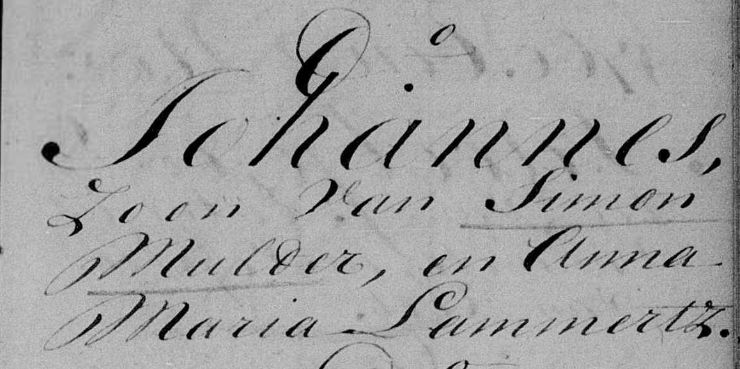 Johannes,
Zoon van Simon
Mulder, en Anna
Maria Lammertz.